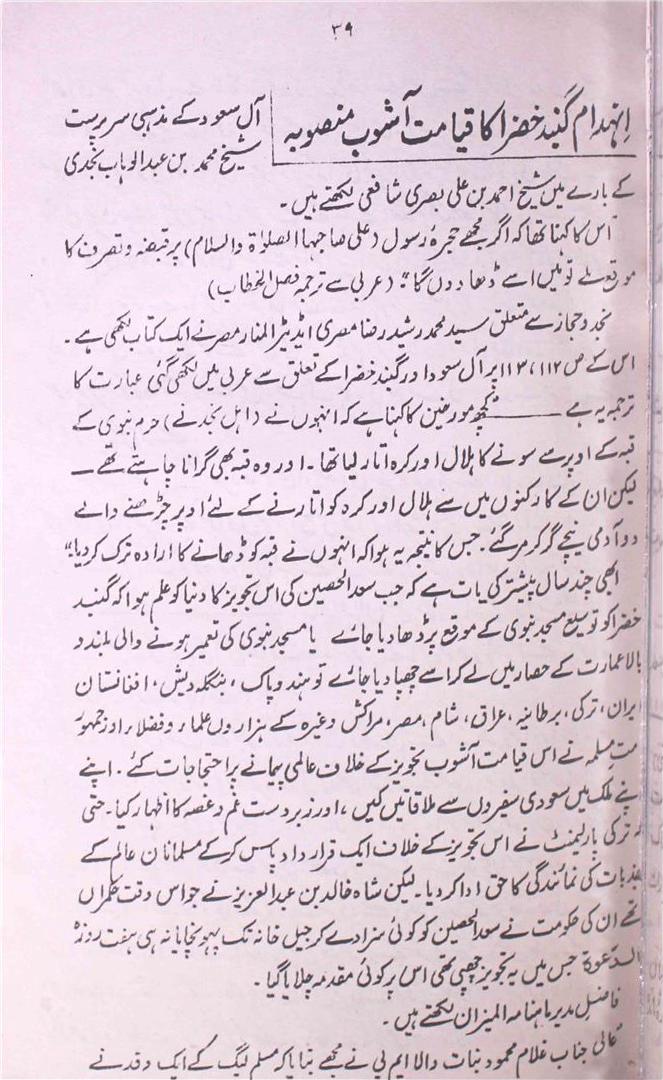 ۳۹
انہدام گنبد خضرا کا قیامت آشوب منصوبہ
آل سعود کے مذہبی سرپرست
شیخ محمد بن عبدالوہاب نجدی
کے بارے میں شیخ احمد بن علی بصری شافعی لکھتے ہیں۔
اس کا کہنا تھا کہ اگر مجھے حجرۂ رسول (علی صاحبہا الصلوٰۃ والسلام) پر قبضہ و تصرف کا
موقع ملے تو میں اسے ڈھا دوں گا"۔ (عربی سے ترجمہ فصل الخطاب)
نجد و حجاز سے متعلق سید محمد رشید رضا مصری ایڈیٹر المنار مصر نے ایک کتاب لکھی ہے۔
اس کے ص ۱۱۲، ۱۱۳ پر آل سعود اور گنبد خضرا کے تعلق سے عربی میں لکھی گئی عبارت کا
ترجمہ یہ ہے ——— "کچھ مورخین کا کہنا ہے کہ انہوں نے (اہل نجد نے) حرم نبوی کے
قبہ کے اوپر سے سونے کا ہلال اور کرہ اتار لیا تھا۔ اور وہ قبہ بھی گرانا چاہتے تھے۔
لیکن ان کے کارکنوں میں سے ہلال اور کرہ کو اتارنے کے لئے اوپر چڑھنے والے
دو آدمی نیچے گر کر مر گئے۔ جس کا نتیجہ یہ ہوا کہ انہوں نے قبہ کو ڈھانے کا ارادہ ترک کر دیا"۔
ابھی چند سال پیشتر کی بات ہے کہ جب سعد الحصین کی اس تجویز کا دنیا کو علم ہوا کہ گنبد
خضرا کو توسیع مسجد نبوی کے موقع پر ڈھا دیا جائے یا مسجد نبوی کی تعمیر ہونے والی بلند و
بالا عمارت کے حصار میں لے کر اسے چھپا دیا جائے تو ہند و پاک، بنگلہ دیش، افغانستان
ایران، ترکی، برطانیہ، عراق، شام، مصر، مراکش وغیرہ کے ہزاروں علماء و فضلا اور جمہور
مت مسلمہ نے اس قیامت آشوب تجویز کے خلاف عالمی پیمانے پر احتجاجات کئے۔ اپنے
اپنے ملک میں سعودی سفیروں سے ملاقاتیں کیں، اور زبردست غم و غصہ کا اظہار کیا۔ حتی
کہ ترکی پارلیمنٹ نے اس تجویز کے خلاف ایک قرارداد پاس کر کے مسلمانان عالم کے
جذبات کی نمائندگی کا حق ادا کر دیا۔ لیکن شاہ خالد بن عبدالعزیز نے جو اس وقت حکمراں
تھے ان کی حکومت نے سعد الحصین کو کوئی سزا دے کر جیل خانہ تک پہونچایا نہ ہی ہفت روزہ
الدعوۃ جس میں یہ تجویز چھپی تھی اس پر کوئی مقدمہ چلایا گیا۔
فاضل مدیر ماہنامہ المیزان لکھتے ہیں۔
"عالی جناب غلام محمود بنات والا ایم پی نے مجھے بتایا کہ مسلم لیگ کے ایک وفد نے